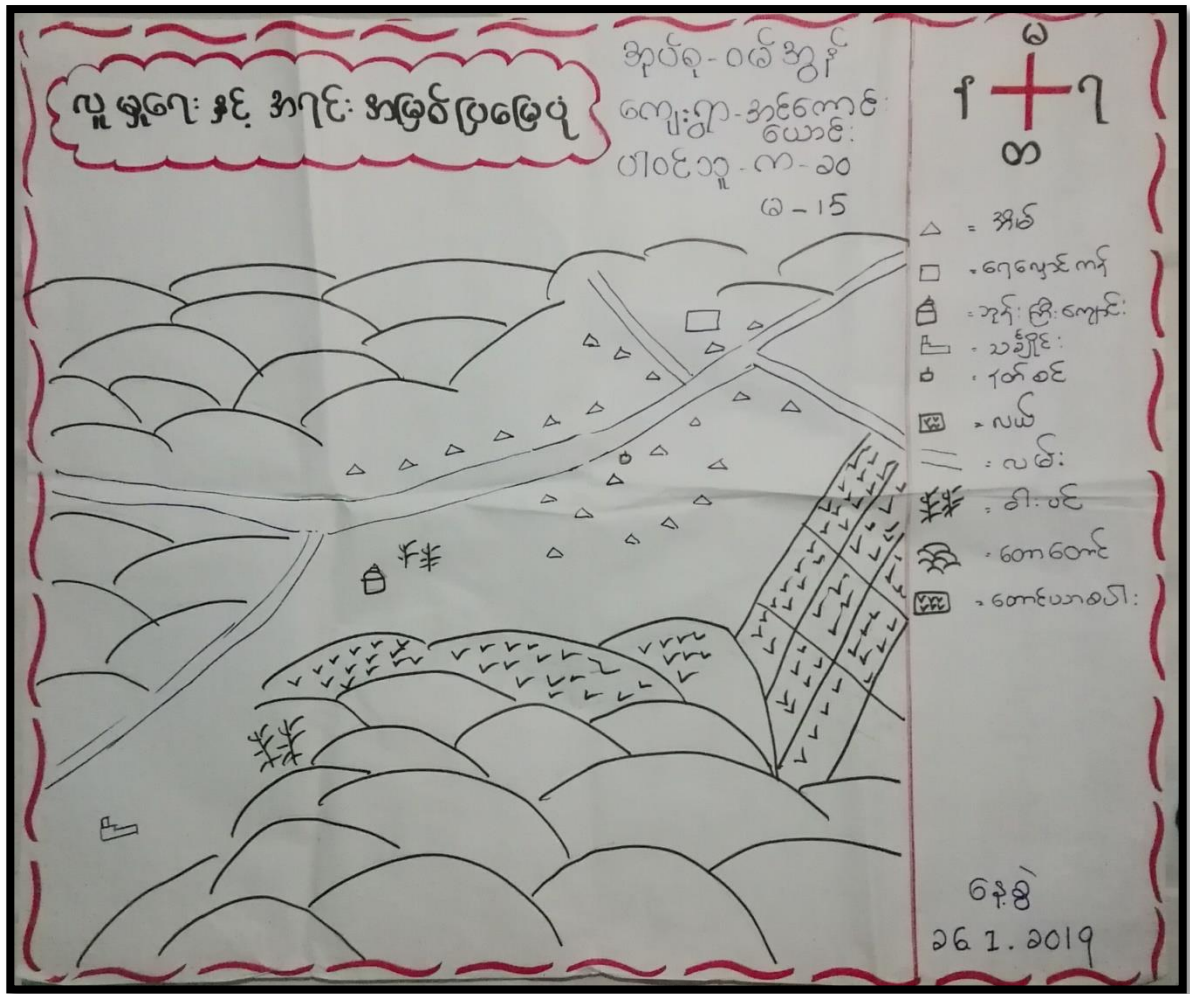 လူမှုရေး နှင့် အရင်းအမြစ်ပြမြေပုံ
အုပ်စု - ဝမ်အွန်
ကျေးရွာ - အင်ကောင်း
ယောင်း
ပါဝင်သူ - က - ၁၀
မ - 15
မ
န
ရ
တ
= အိမ်
= ရေလှောင်ကန်
= ဘုန်းကြီးကျောင်း
- သင်္ချိုင်း
- နတ်စင်
= လယ်
= လမ်း
= ဝါးပင်
= တောတောင်
= တောင်ယာစပါး
နေ့စွဲ
26.1.2019